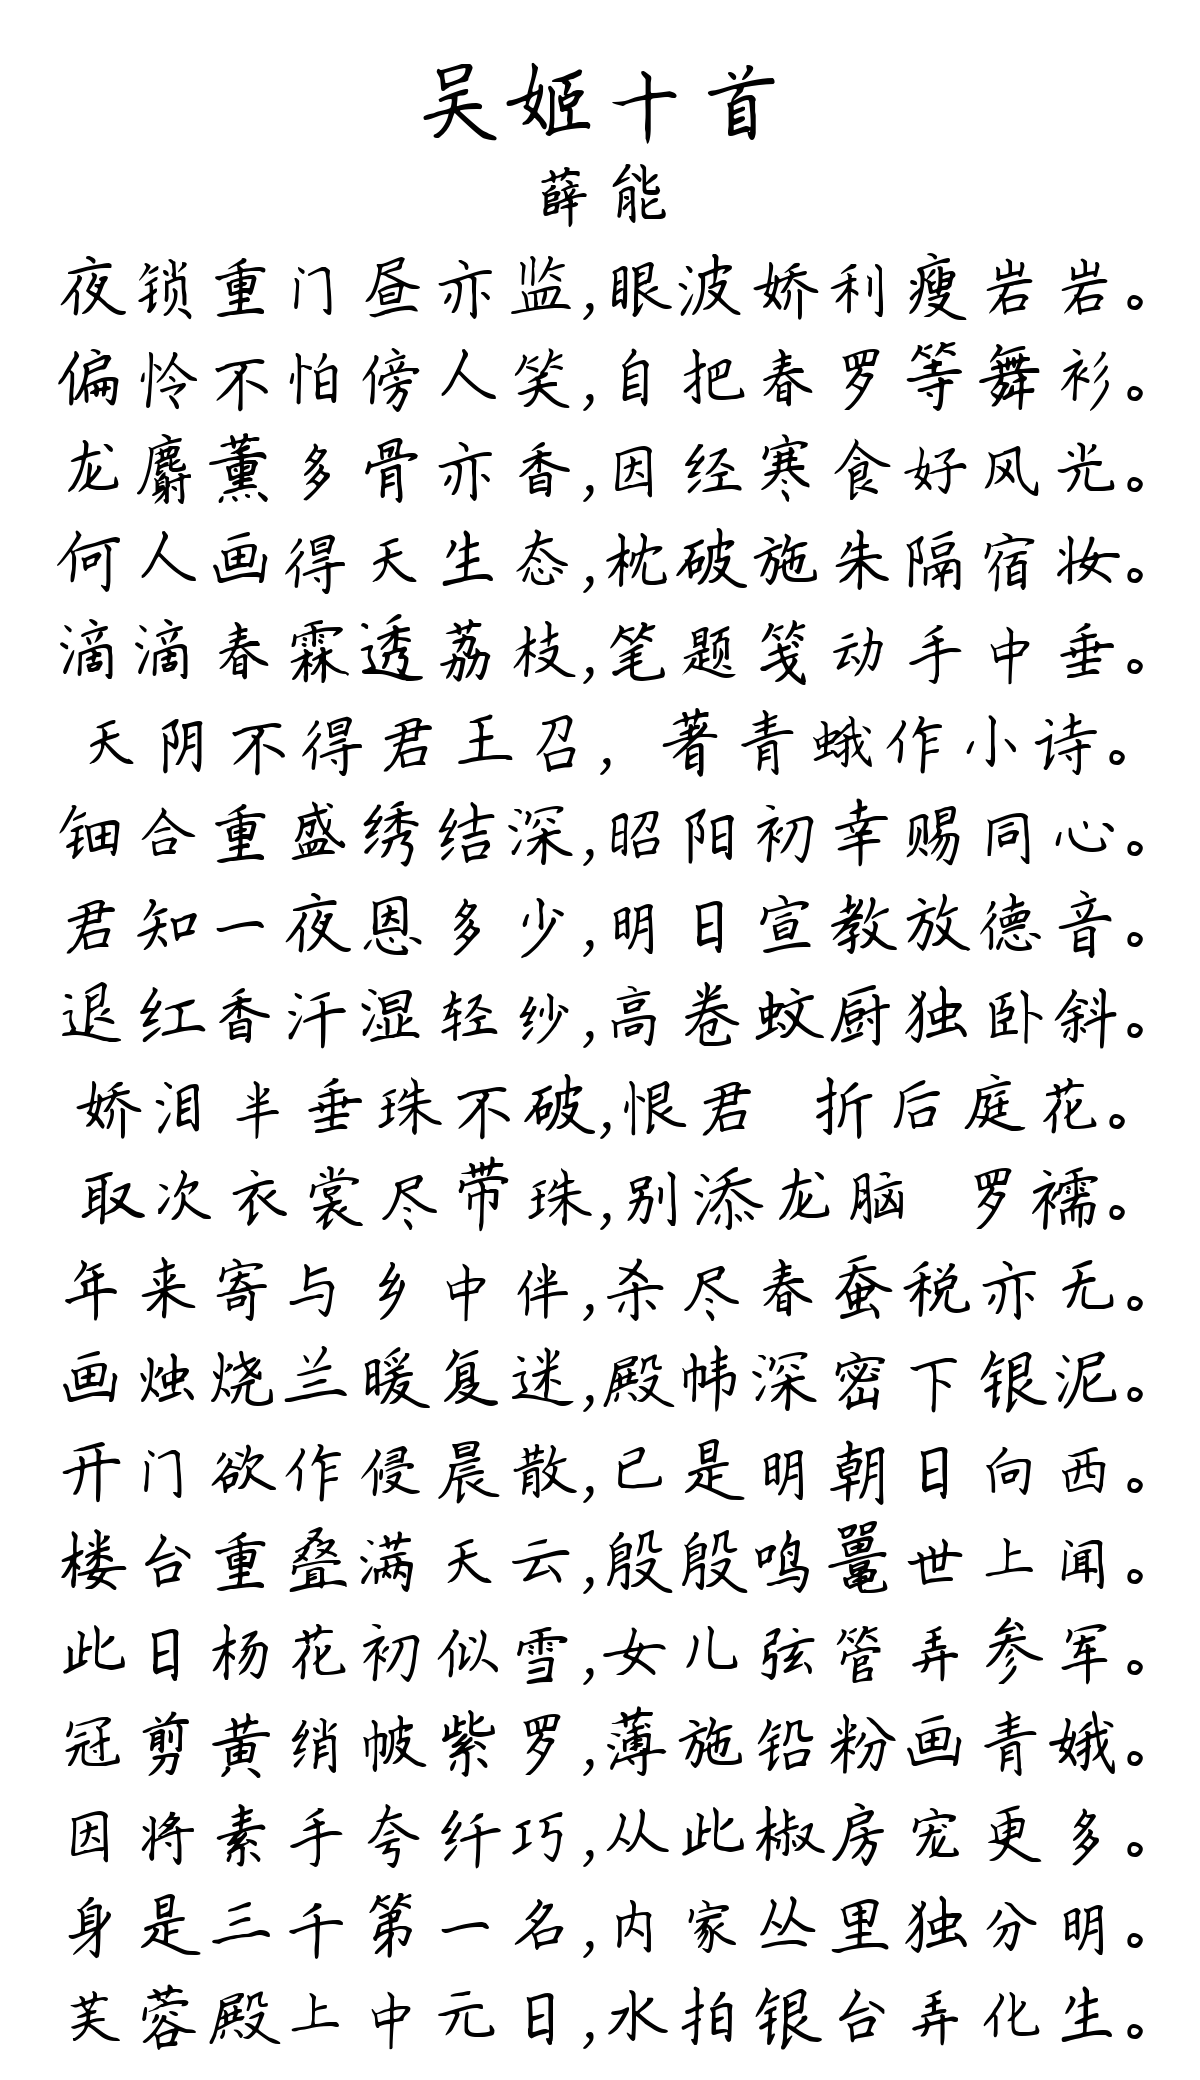 吴姬十首
薛能
夜锁重门昼亦监,眼波娇利瘦岩岩。
偏怜不怕傍人笑,自把春罗等舞衫。
龙麝薰多骨亦香,因经寒食好风光。
何人画得天生态,枕破施朱隔宿妆。
滴滴春霖透荔枝,笔题笺动手中垂。
天阴不得君王召，著青蛾作小诗。
钿合重盛绣结深,昭阳初幸赐同心。
君知一夜恩多少,明日宣教放德音。
退红香汗湿轻纱,高卷蚊厨独卧斜。
娇泪半垂珠不破,恨君 折后庭花。
取次衣裳尽带珠,别添龙脑 罗襦。
年来寄与乡中伴,杀尽春蚕税亦无。
画烛烧兰暖复迷,殿帏深密下银泥。
开门欲作侵晨散,已是明朝日向西。
楼台重叠满天云,殷殷鸣鼍世上闻。
此日杨花初似雪,女儿弦管弄参军。
冠剪黄绡帔紫罗,薄施铅粉画青娥。
因将素手夸纤巧,从此椒房宠更多。
身是三千第一名,内家丛里独分明。
芙蓉殿上中元日,水拍银台弄化生。